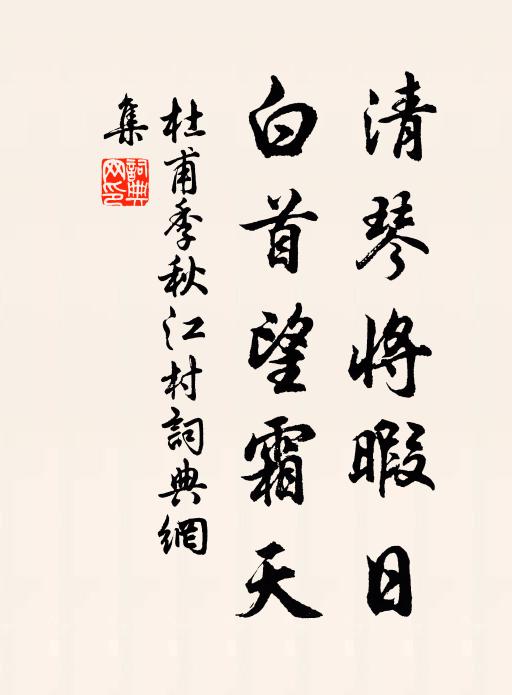 清琴將暇日
白首望霜天
杜甫季秋江村詞典網
集
詞典
网印